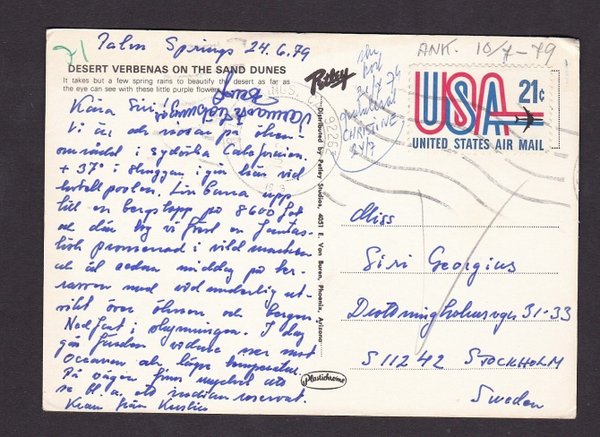 71
Palm Springs 24.6.79
DESERT VERBENAS ON THE SAND DUNES
It takes but a few spring rains to beautify the desert as far as
the eye can see with these little purple flowers.
Kära Siri!
Vi är och rosar på öken-
område i sydöstra Californien.
+ 37° i skuggan i går vid
hotellpoolen. Lin bana upp
till en bergstopp på 8600 fot
och där tog vi först en fantas-
tisk promenad i vild marken
och åt sedan middag på ter-
rassen med vid underlig ut-
sikt över öknen och bergen
Nedfart i skymningen. I dag
går färden vidare mer mot
Oceanen och lägre temperatur.
På vägen finns mycket att
se bl.a. ett indian reservat.
Kram från Kerstin
Petley
Distributed by Petley Studios, 4051 E. Van Buren, Phoenix, Arizona
Plastichrome
CHRISTINE
24/7
92262
ANK. 10/7-79
USA 21¢
UNITED STATES AIR MAIL
Miss
Siri Georgius
Drottningholmsvägen 31-33
S 112 42 STOCKHOLM
Sweden